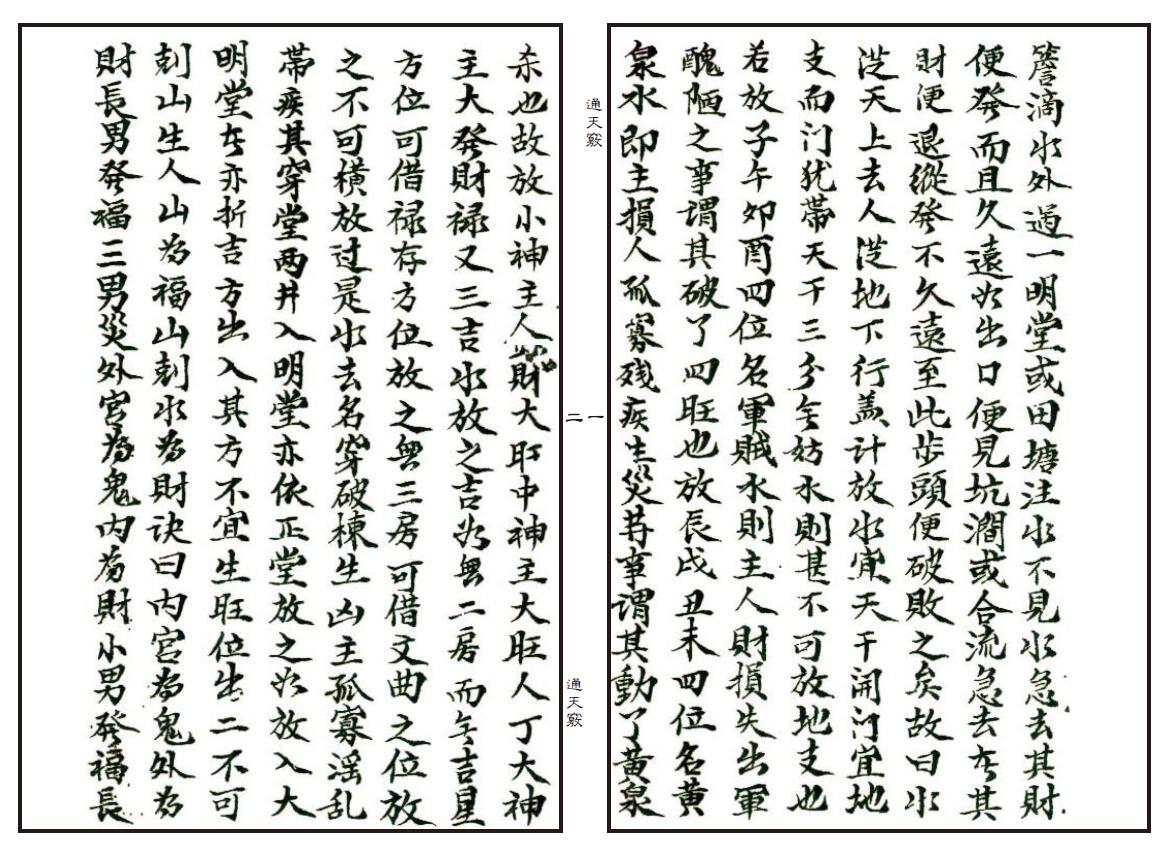 簷滴水外過一明堂或田塘注水不見水急去其財
便發而且久遠如出口便見坑澗或合流急去者其
財便退縱發不久遠至此步頭便破敗之矣故曰水
從天上去人從地下行盖计放水宜天干開门宜地
支而门犹帶天干三分无妨水則甚不可放地支也
若放子午卯酉四位名軍賊水則主人財損失出軍
醜陋之事謂其破了四旺也放辰戌丑未四位名黄
泉水即主損人孤寡残疾生災等事謂其動了黄泉
杀也故放小神主人財大旺中神主大旺人丁大神
主大發財禄又三吉水放之吉如無二房而无吉星
方位可借禄存方位放之無三房可借文曲之位放
之不可横放过是水去名穿破棟生凶主孤寡淫乱
帶疾其穿堂两井入明堂亦依正堂放之如放入大
明堂者亦折吉方出入其方不宜生旺位出二不可
剋山生人山為福山剋水為財诀曰内宫為鬼外為
財長男發福三男災外宫為鬼内為財小男發福長
通天竅
一
二
通天竅